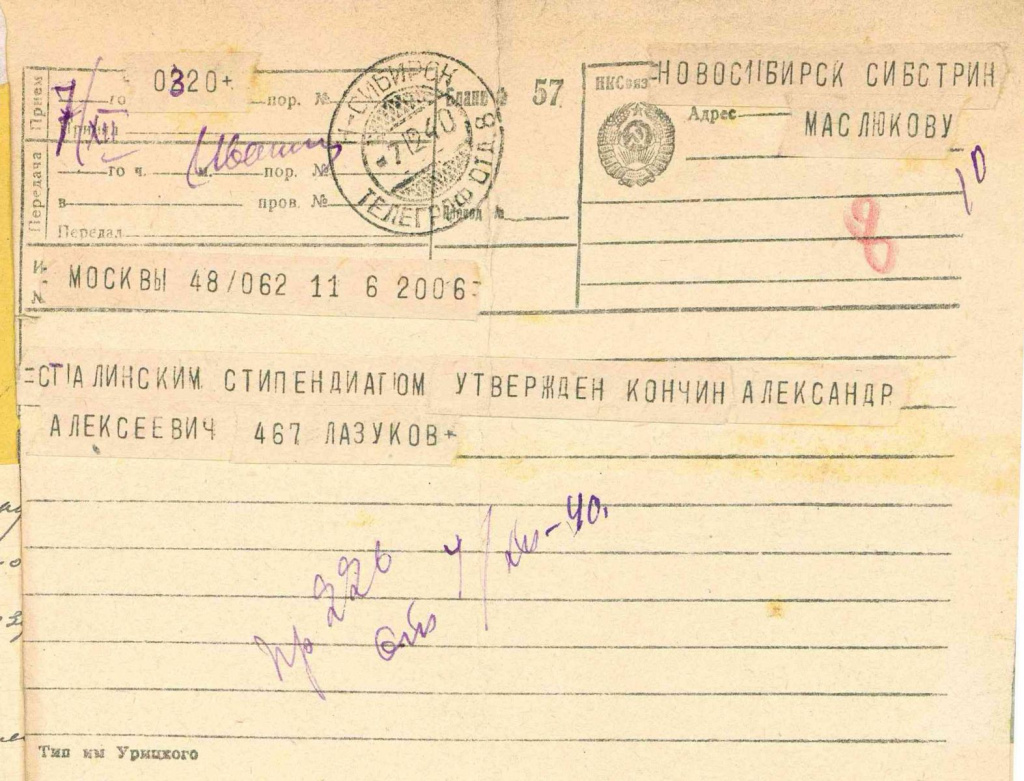 Прием
7/XII
го
0320+
пор. №
Бланк №
57
НКСвязи
НОВОСИБИРСК СИБСТРИН
Адрес
МАСЛЮКОВУ
Н-СИБИРСК
7 12 40
ТЕЛЕГРАФ ОТД 8
Принял
Передача
го ч. м. пор. №
в пров. №
Передал
10
8
Из МОСКВЫ 48/062 11 6 2006=
№
=СТАЛИНСКИМ СТИПЕНДИАТОМ УТВЕРЖДЕН КОНЧИН АЛЕКСАНДР
АЛЕКСЕЕВИЧ 467 ЛАЗУКОВ+
Пр 226
от 7/XII-40.
Тип им Урицкого